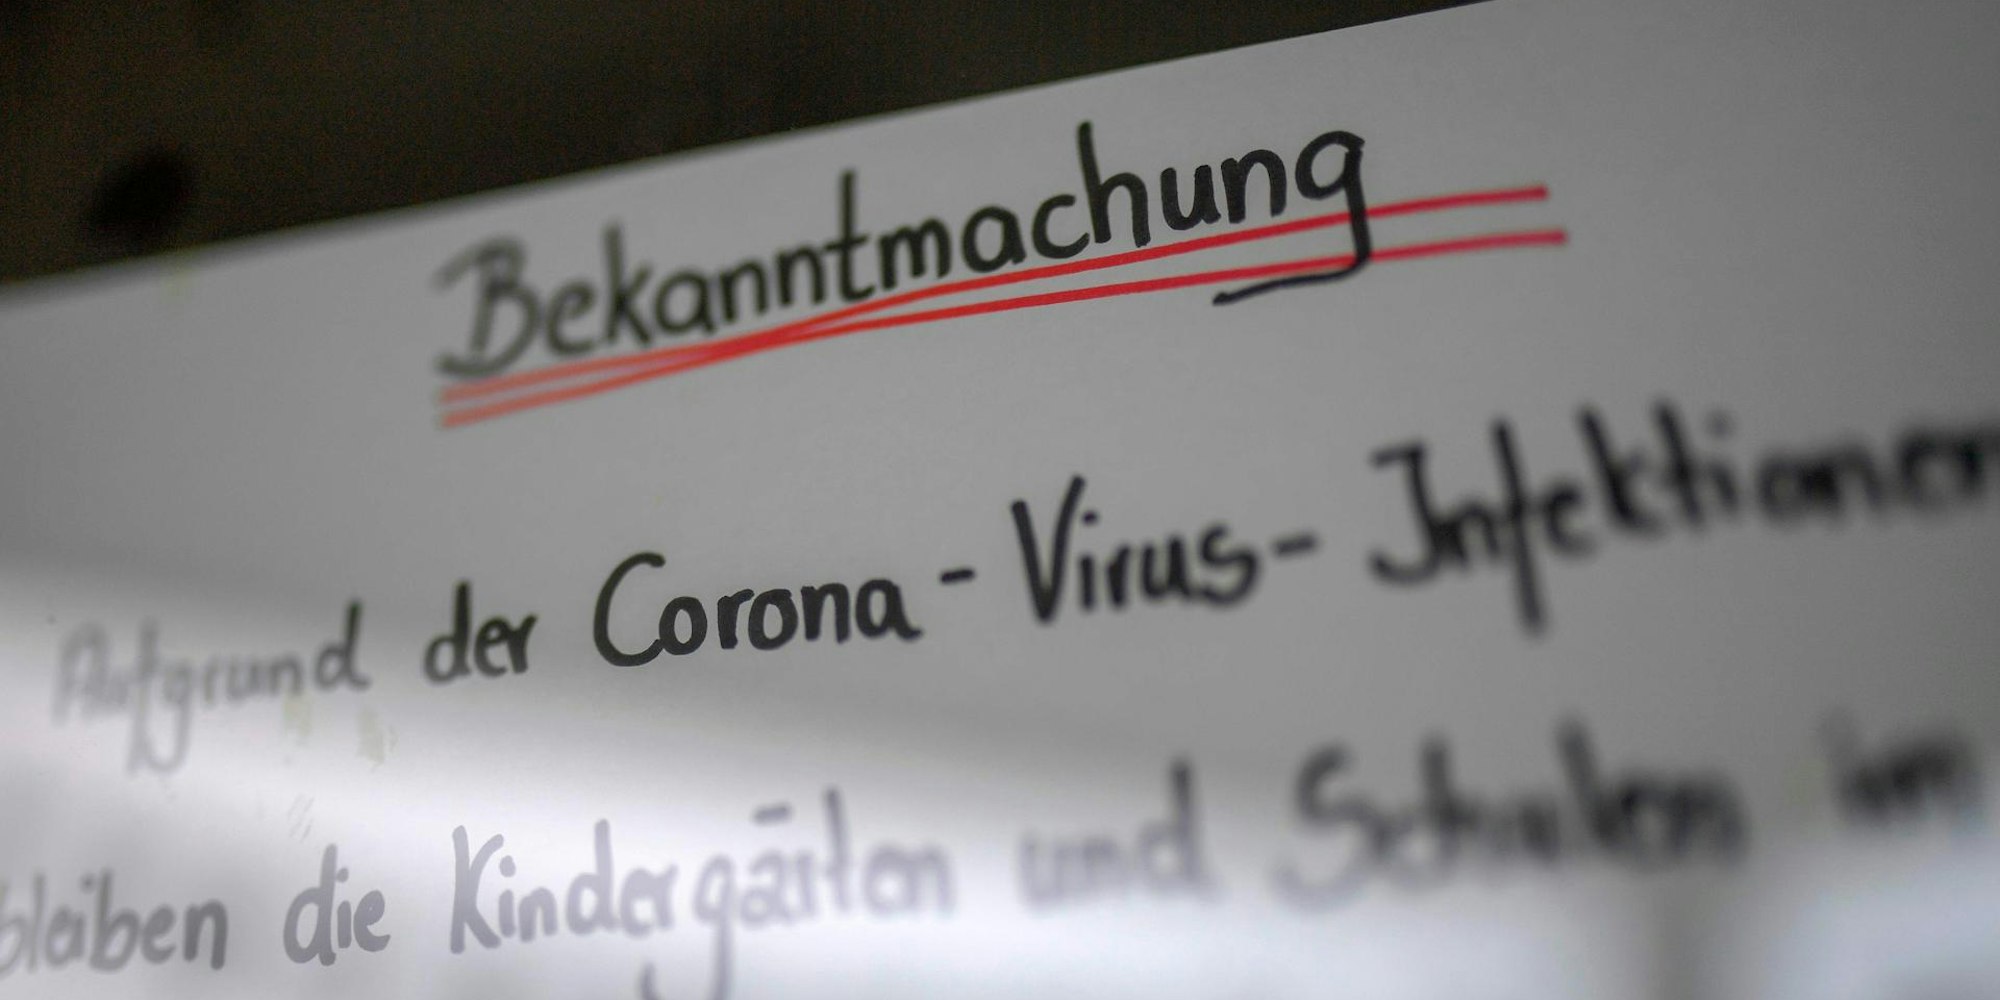 Bekanntmachung
Aufgrund der Corona-Virus-Infektionen
bleiben die Kindergärten und Schulen im